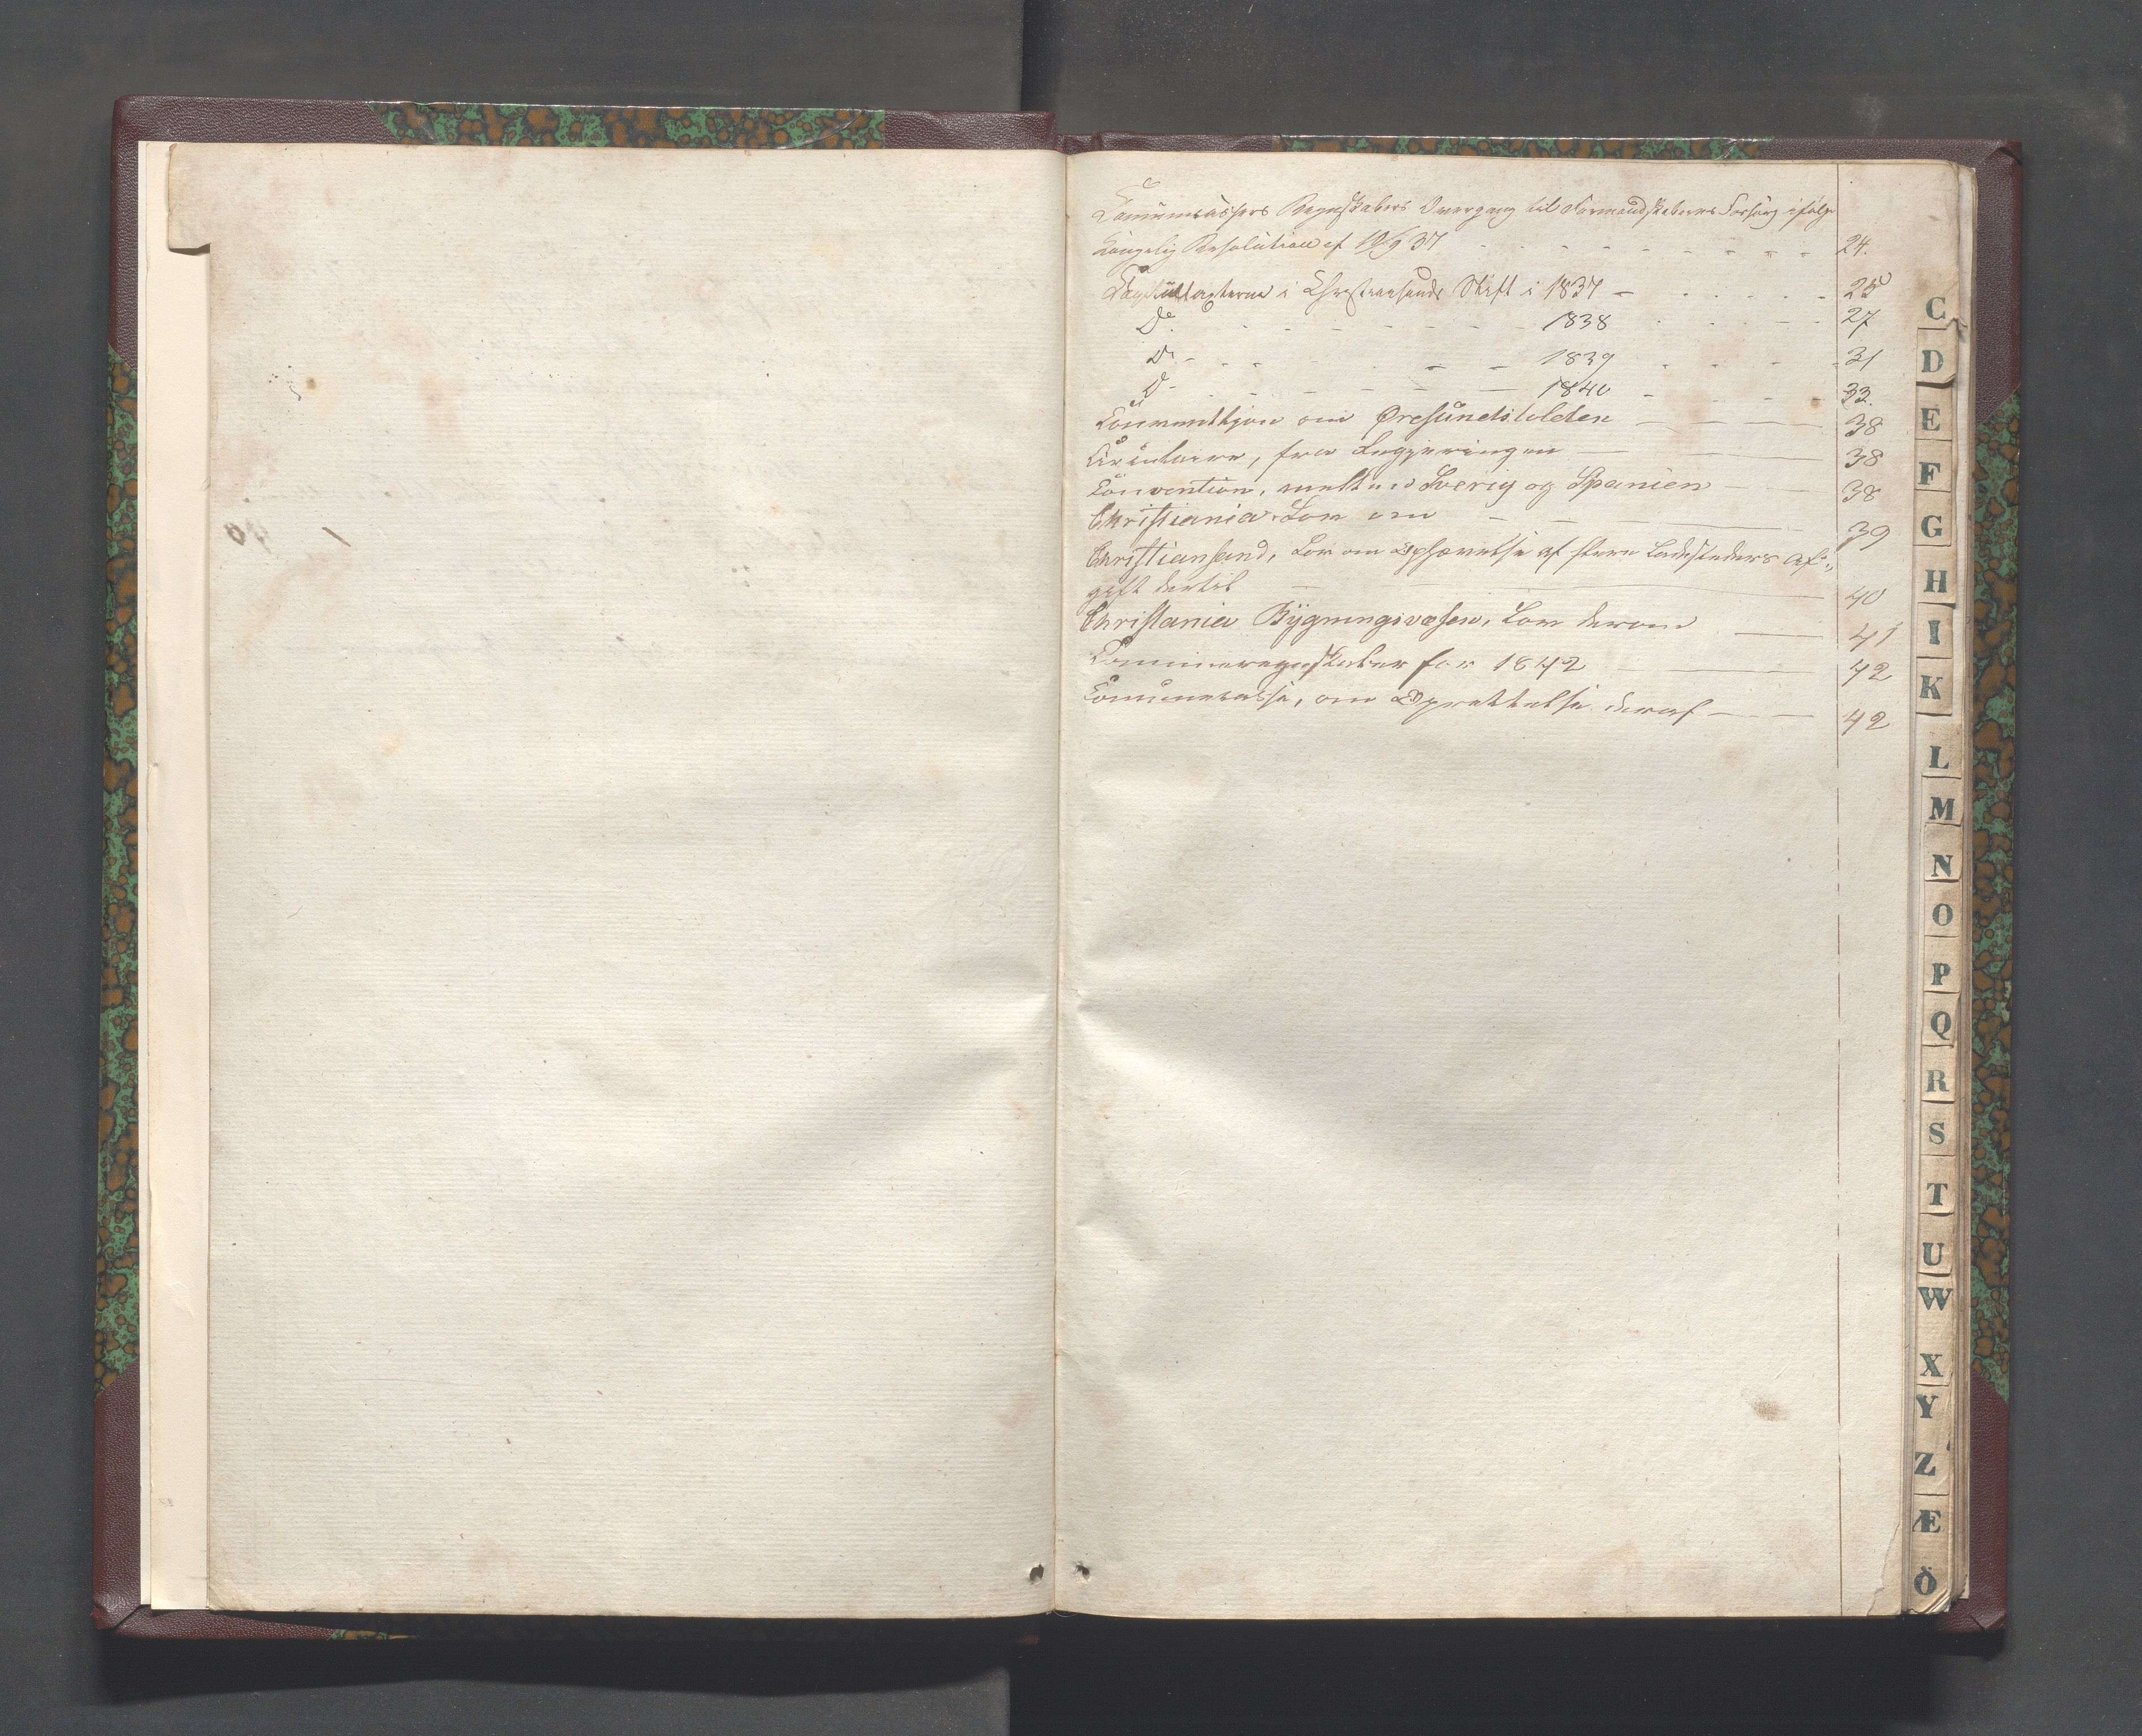 Communecassers Regnskabers Overgang til Formandskabernes Forsørg ifølge
Kongelig Resolution af 19/9 37 - - - - - - - - - 24.
i Christiansands Stift i 1837 - - - - - 25
Do. - - - - - - - - 1838 - - - - 27
Do - - - - - - - 1839 - - - - 31
Do - - - - - - 1840 - - - - 33.
Conventhjon om Øresundstolden - - - 38
Circulaire, fra Regjeringen - - 38
Convention, mellem Sverig og Spanien - - 38
Christiania Lov om - - - 39
Christiansand, Lov om Ophævelse af flere Ladesteders Af„
gift dertil - - 40
Christania Bygningsvæsen, Lov derom - 41
Communeregnskaber for 1842 - - 42
Communecasse, om Oprettelse deraf - - 42
C
D
E
F
G
H
I
K
L
M
N
O
P
Q
R
S
T
U
W
X
Y
Z
Æ
Ö